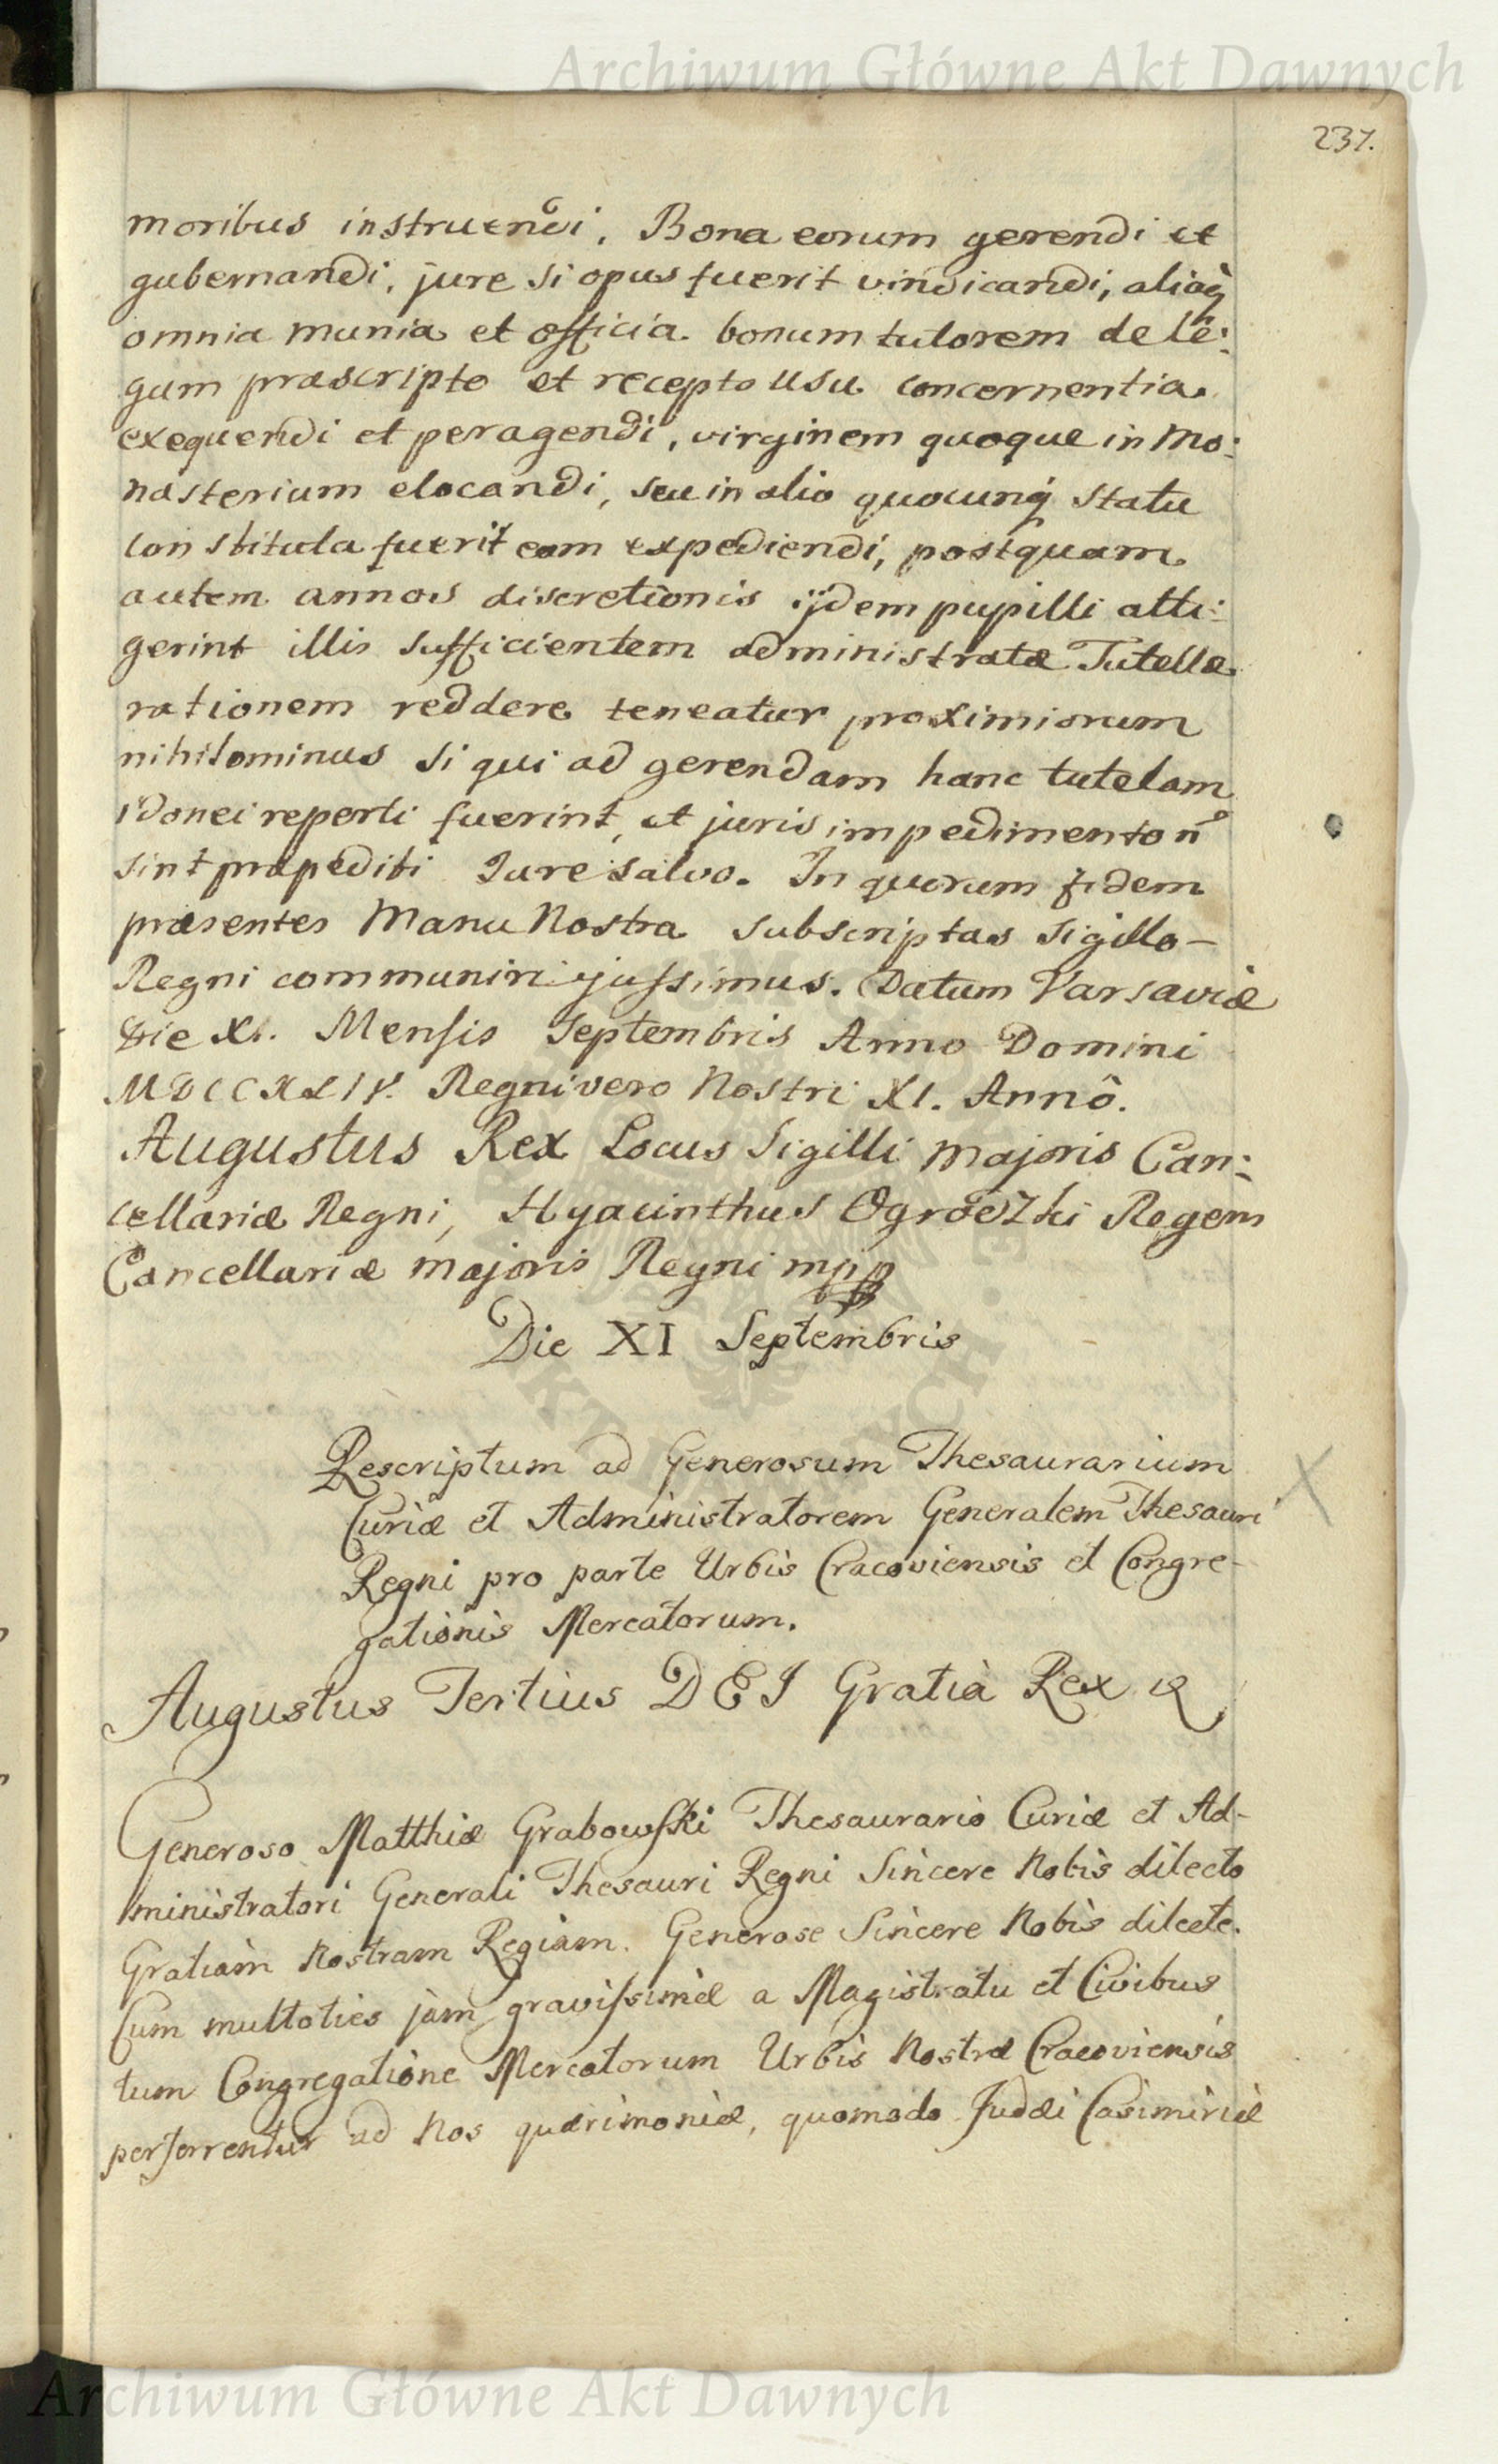 Archiwum Główne Akt Dawnych
237.
moribus instruendi, Bona eorum gerendi et
gubernandi, jure si opus fuerit vindicandi, aliaq̀
omnia munia et officia bonum tutorem de le:
gum præscripto et recepto usu concernentia
exequendi et peragendi, virginem quoque in Mo:
nasterium elocandi, seu in alio quocunq̀ statu
constituta fuerit eam expediendi, postquam
autem annos discretionis ijdem pupilli atti:
gerint illis sufficientem administratæ Tutellæ
rationem reddere teneatur proximiorum
nihilominus si qui ad gerendam hanc tutelam
idonei reperti fuerint, et juris impedimento n̊
sint præpediti Jure salvo. In quorum fidem
præsentes Manu Nostra subscriptas sigillo –
Regni communiri jussimus. Datum Varsaviæ
Die XI. Mensis Septembris Anno Domini
MDCCXLIV. Regni vero Nostri XI. Annô.
Augustus Rex Locus Sigilli Majoris Can:
cellariæ Regni, Hyacinthus Ogrodzki Regens
Cancellariæ Majoris Regni mpp
Die XI Septembris
Rescriptum ad Generosum Thesaurarium
Curiæ et Administratorem Generalem Thesauri
Regni pro parte Urbis Cracoviensis et Congre-
gationis Mercatorum.
Augustus Tertius DEI Gratià Rex &
Generoso Matthiæ Grabowski Thesaurario Curiæ et Ad-
ministratori Generali Thesauri Regni Sincere Nobis dilecto
Gratiam Nostram Regiam. Generose Sincere Nobis dilecte.
Cum multoties jam gravissimæ a Magistratu et Civibus
tum Congregatione Mercatorum Urbis Nostræ Cracoviensis
perferrentur ad Nos quærimoniæ, quomodo Judæi Casimiriæ
Archiwum Główne Akt Dawnych